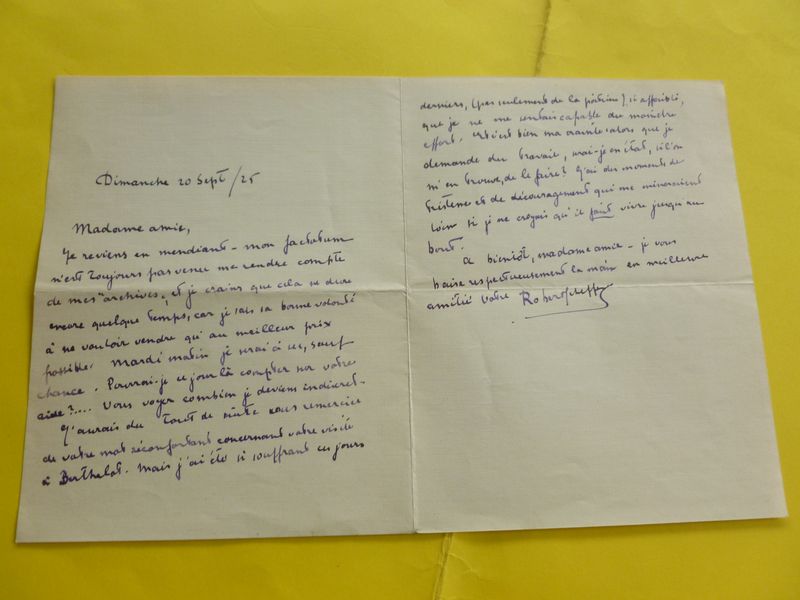 Dimanche 20 Sept/25
Madame amie,
Je reviens en mendiant - mon factotum
n'est toujours pas venu me rendre compte
de mes "archives", et je crains que cela ne dure
encore quelque temps, car je sais sa bonne volonté
à ne vouloir vendre qu'au meilleur prix
possible. Mardi matin je serai à sec, sauf
chance. Pourrai-je ce jour là compter sur votre
aide ?.... Vous voyez combien je deviens indiscret.
J'aurais dû tout de suite vous remercier
de votre mot réconfortant concernant votre visite
à Berthelot. Mais j'ai été si souffrant ces jours
derniers, (pas seulement de la poitrine), si affaibli,
que je ne me sentais capable du moindre
effort. Et c'est bien ma crainte : alors que je
demande du travail, serai-je en état, si l'on
m'en trouve, de le faire ? J'ai des moments de
tristesse et de découragement qui me mèneraient
loin si je ne croyais qu'il faut vivre jusqu'au
bout.
A bientôt, madame amie - je vous
baise respectueusement la main en meilleure
amitié votre Robert Scheffer